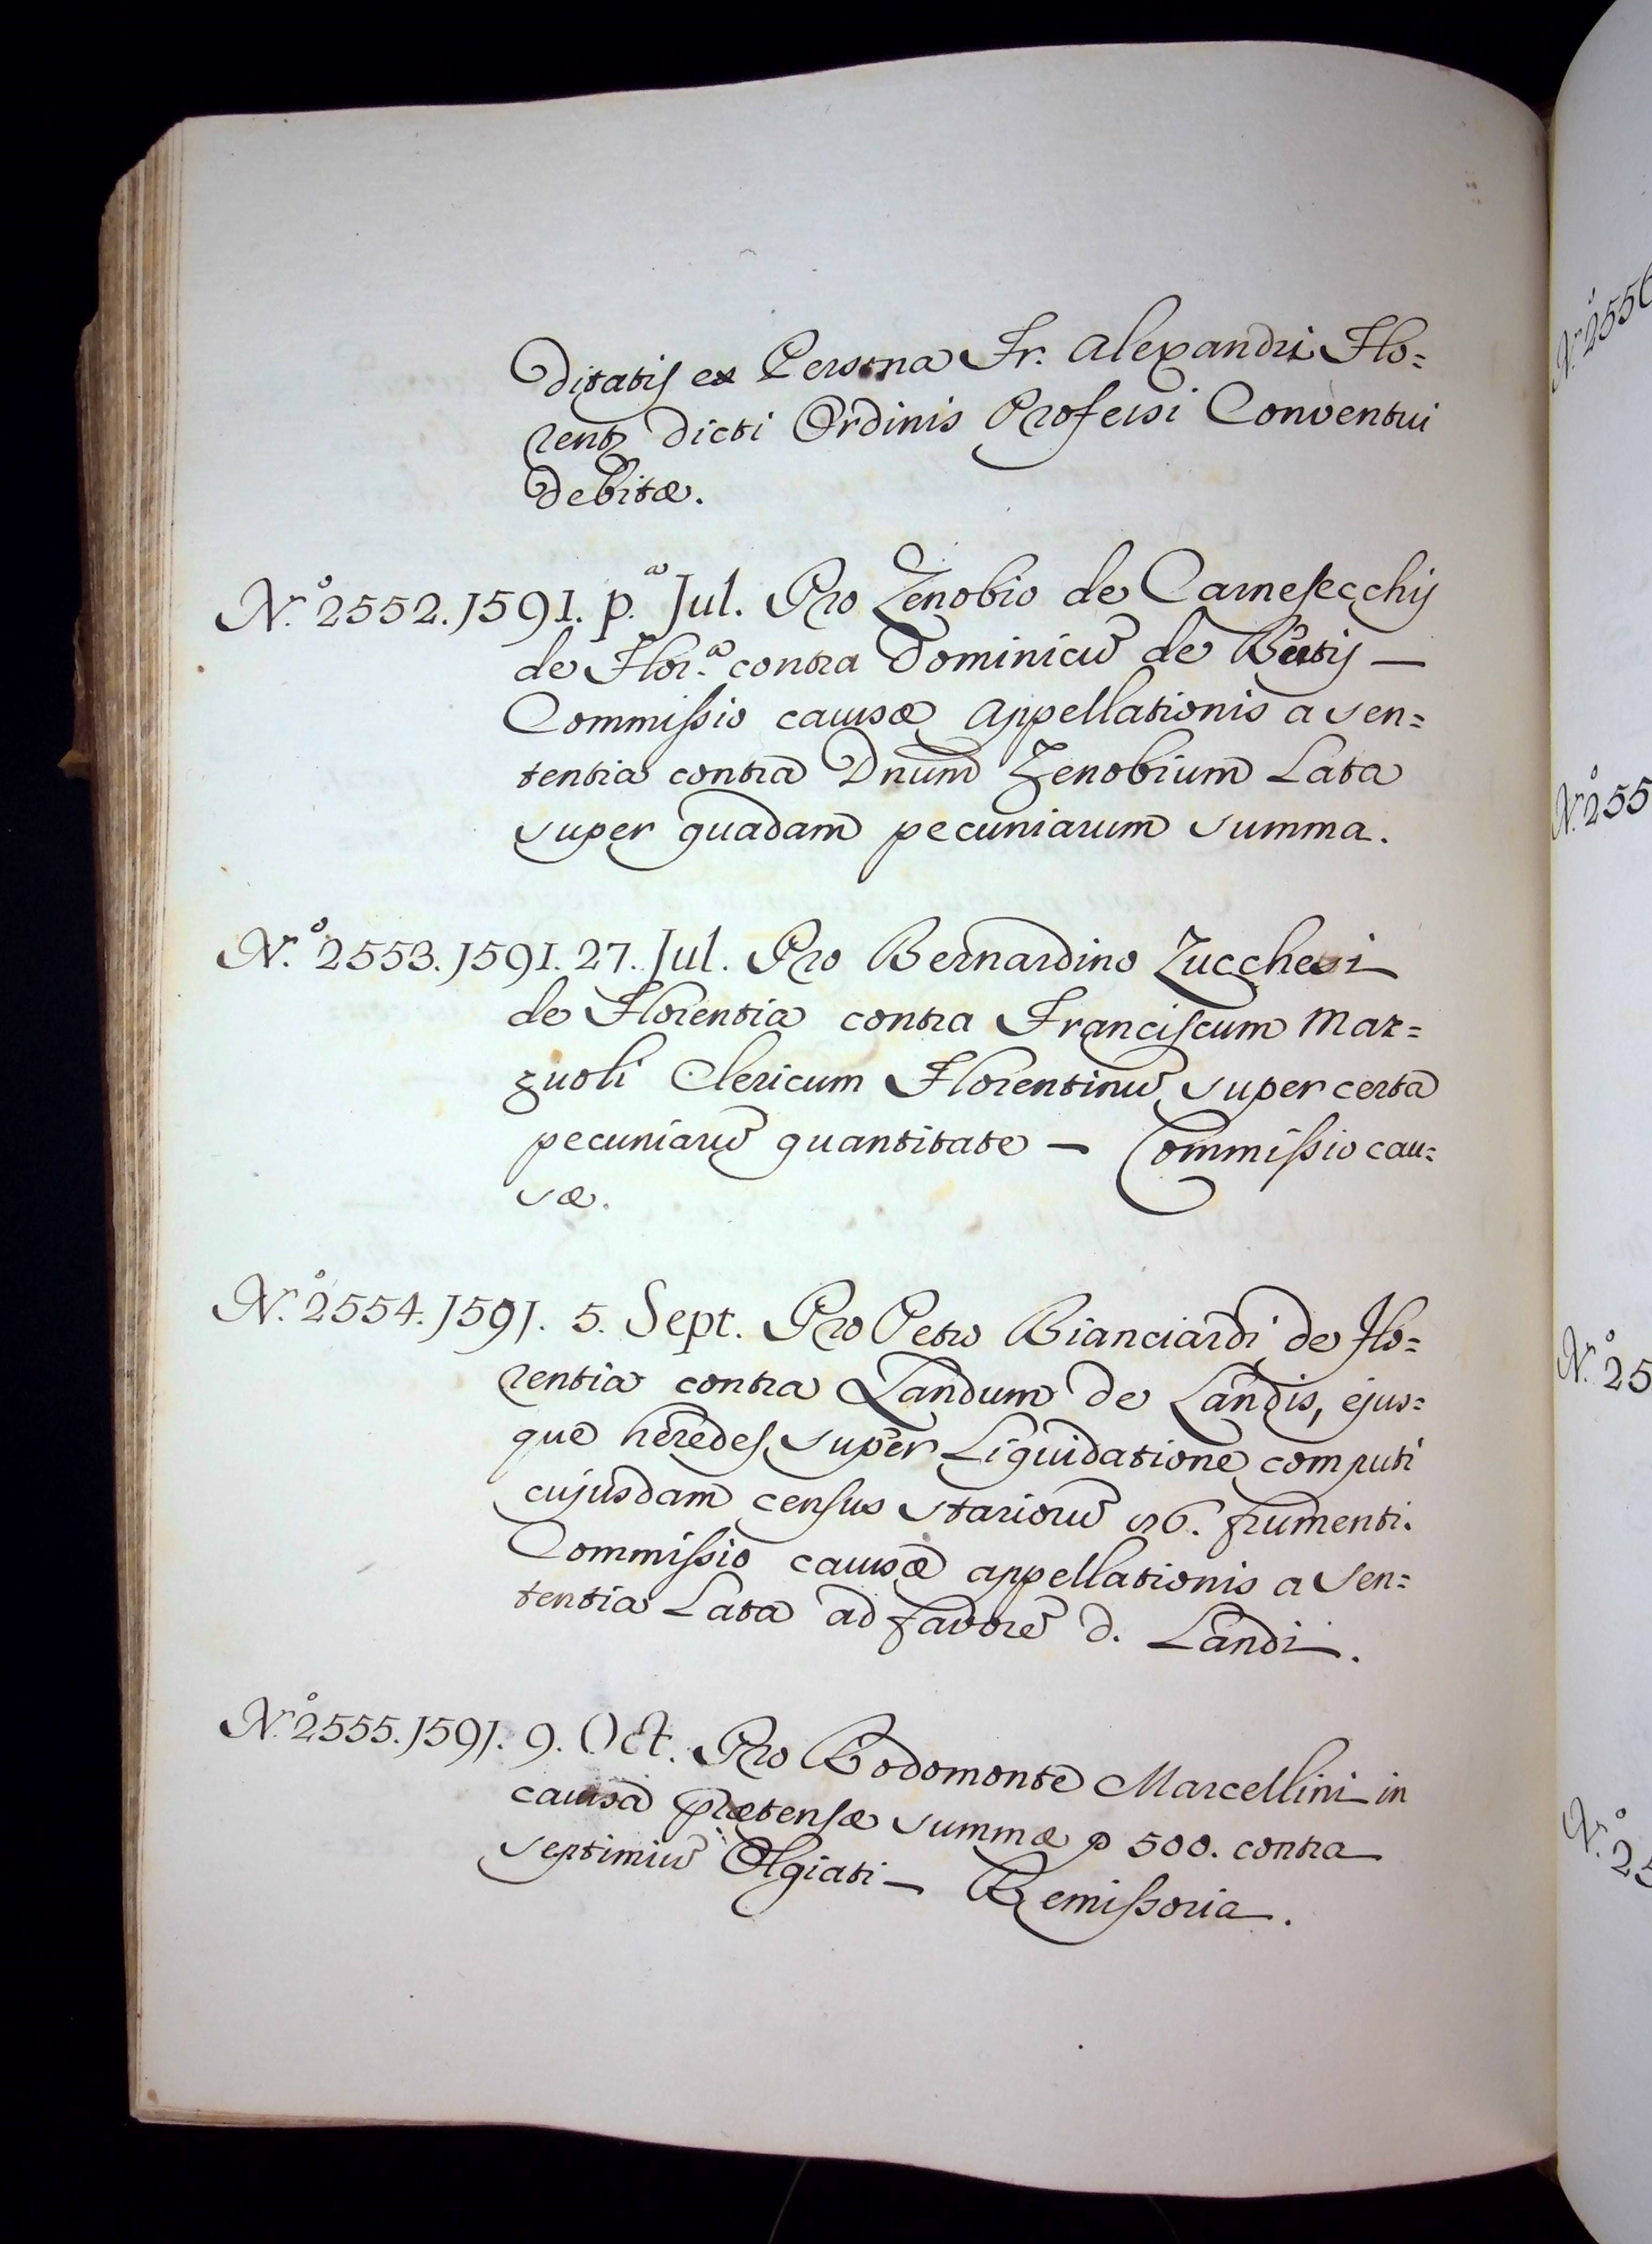 ditatis ex Persona Fr. Alexandri Flo=
rent dicti Ordinis Professi Conventui
debitæ.
N.º 2552. 1591. p.ª Jul. Pro Zenobio de Carnesecchij
de Flor.ª contra Dominicũ de —
Commissio causæ Appellationis a sen=
tentia contra Dnum Zenobium Lata
super quadam pecuniarum summa.
N.º 2553. 1591. 27. Jul. Pro Bernardino Zucchesi
de Florentia contra Franciscum Mar=
zuoli Clericum Florentinũ super certa
pecuniarũ quantitate — Commissio cau=
sæ.
N.º 2554. 1591. 5. Sept. Pro Petro Bianciardi de Flo=
rentia contra Landum de Landis, ejus=
que heredes super Liquidatione computi
cujusdam census stariorũ frumenti.
Commissio causæ appellationis a Sen=
tentia Lata ad favorẽ d. Landi.
N.º 2555. 1591. 9. Oct. Pro Rodomonte Marcellini in
causa prætensæ summæ 500. contra
Septimiũ Olgiati — Remissoria.
Nº 2556
Nº 255
Nº 25
Nº 25